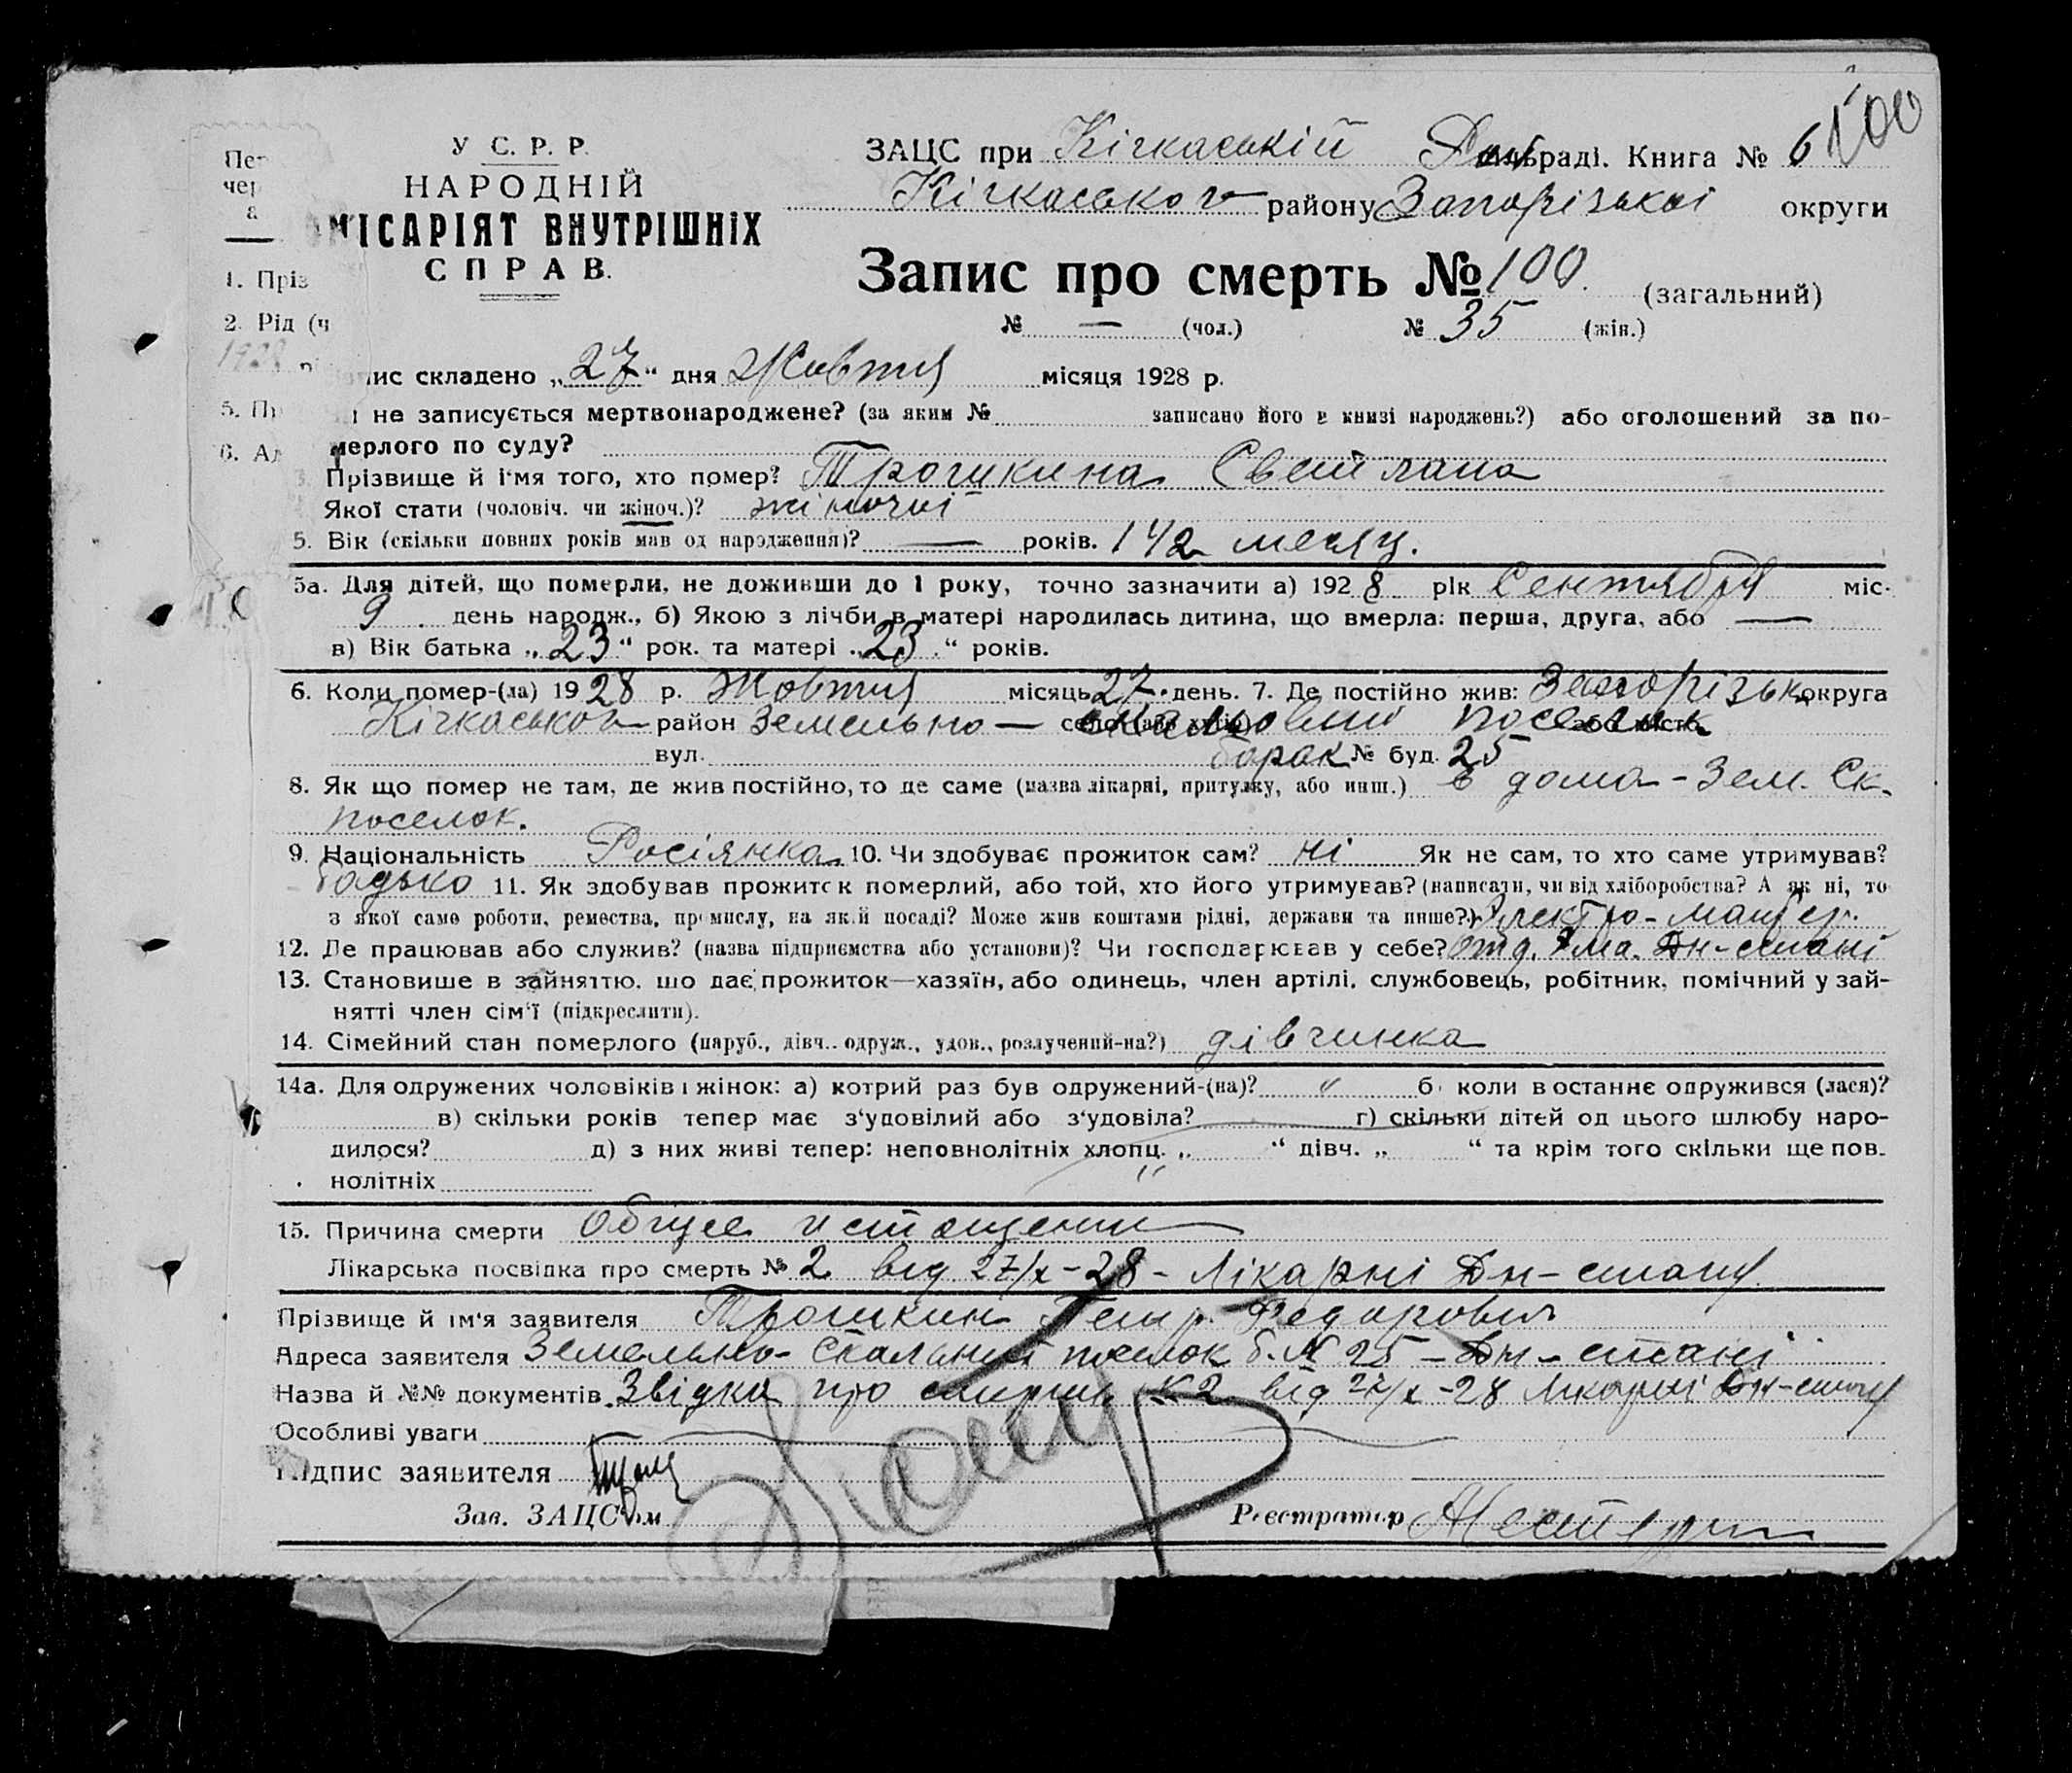 У С. Р. Р.
НАРОДНІЙ
МІСАРІЯТ ВНУТРІШНІХ
СПРАВ.
ЗАЦС при Кічкаській раді. Книга № 6 100
Кічкаського району Запорізької округи
Запис про смерть № 100. (загальний)
№ — (чол.) № 35 (жін.)
1. Пріз
2. Рід (ч
ис складено „27“ дня Жовтня місяця 1928 р.
не записується мертвонароджене? (за яким № записано його в книзі народжень?) або оголошений за по-
мерлого по суду?
Прізвище й ім'я того, хто помер? Трошкина Светлана
Якої стати (чоловіч. чи жіноч.)? жіночої
5. Вік (скільки повних років мав од народження)? — років. 1 1/2 месяц.
5а. Для дітей, що померли, не доживши до 1 року, точно зазначити а) 1928 рік Сентября міс.
9 день народж., б) Якою з лічби в матері народилась дитина, що вмерла: перша, друга, або —
в) Вік батька „23“ рок. та матері „23“ років.
6. Коли помер-(ла) 1928 р. Жовтня місяць 27 день. 7. Де постійно жив: Запорізьк округа
Кічкаського район Земельно — поселок
вул. барак № буд. 25
8. Як що помер не там, де жив постійно, то де саме (назва лікарні, притулку, або инш.) в дома - Зем. Ск.
поселок.
9. Національність Росіянка 10. Чи здобуває прожиток сам? ні Як не сам, то хто саме утримував?
батько 11. Як здобував прожиток померлий, або той, хто його утримував? (написати, чи від хліборобства? А як ні, то
з якої саме роботи, ремества, промислу, на якій посаді? Може жив коштами рідні, держави та инше?) Електро-монтер.
12. Де працював або служив? (назва підприємства або установи)? Чи господарював у себе? Дн-стані
13. Становише в зайняттю, що дає прожиток—хазяїн, або одинець, член артілі, службовець, робітник, помічний у зай-
нятті член сім'ї (підкреслити).
14. Сімейний стан померлого (паруб., дівч., одруж., удов., розлучений-на?) дівчинка
14а. Для одружених чоловіків і жінок: а) котрий раз був одружений-(на)? „ б) коли востаннє одружився (лася)?
в) скільки років тепер має з'удовілий або з'удовіла? г) скільки дітей од цього шлюбу наро-
дилося? д) з них живі тепер: неповнолітніх хлопц. „ “ дівч. „ “ та крім того скільки ще пов.
нолітніх
15. Причина смерти Общее истощение
Лікарська посвідка про смерть № 2 від 27/X-28 - Лікарні Дн-стану
Прізвище й ім'я заявителя Трошкин Петр Федорович
Адреса заявителя Земельно-Скальний поселок б. № 25 - Дн-стані
Назва й №№ документів Звідка про смерть № 2 від 27/X-28 Лікарні Дн-стану
Особливі уваги
Підпис заявителя
Зав. ЗАЦС'ом Реєстратор